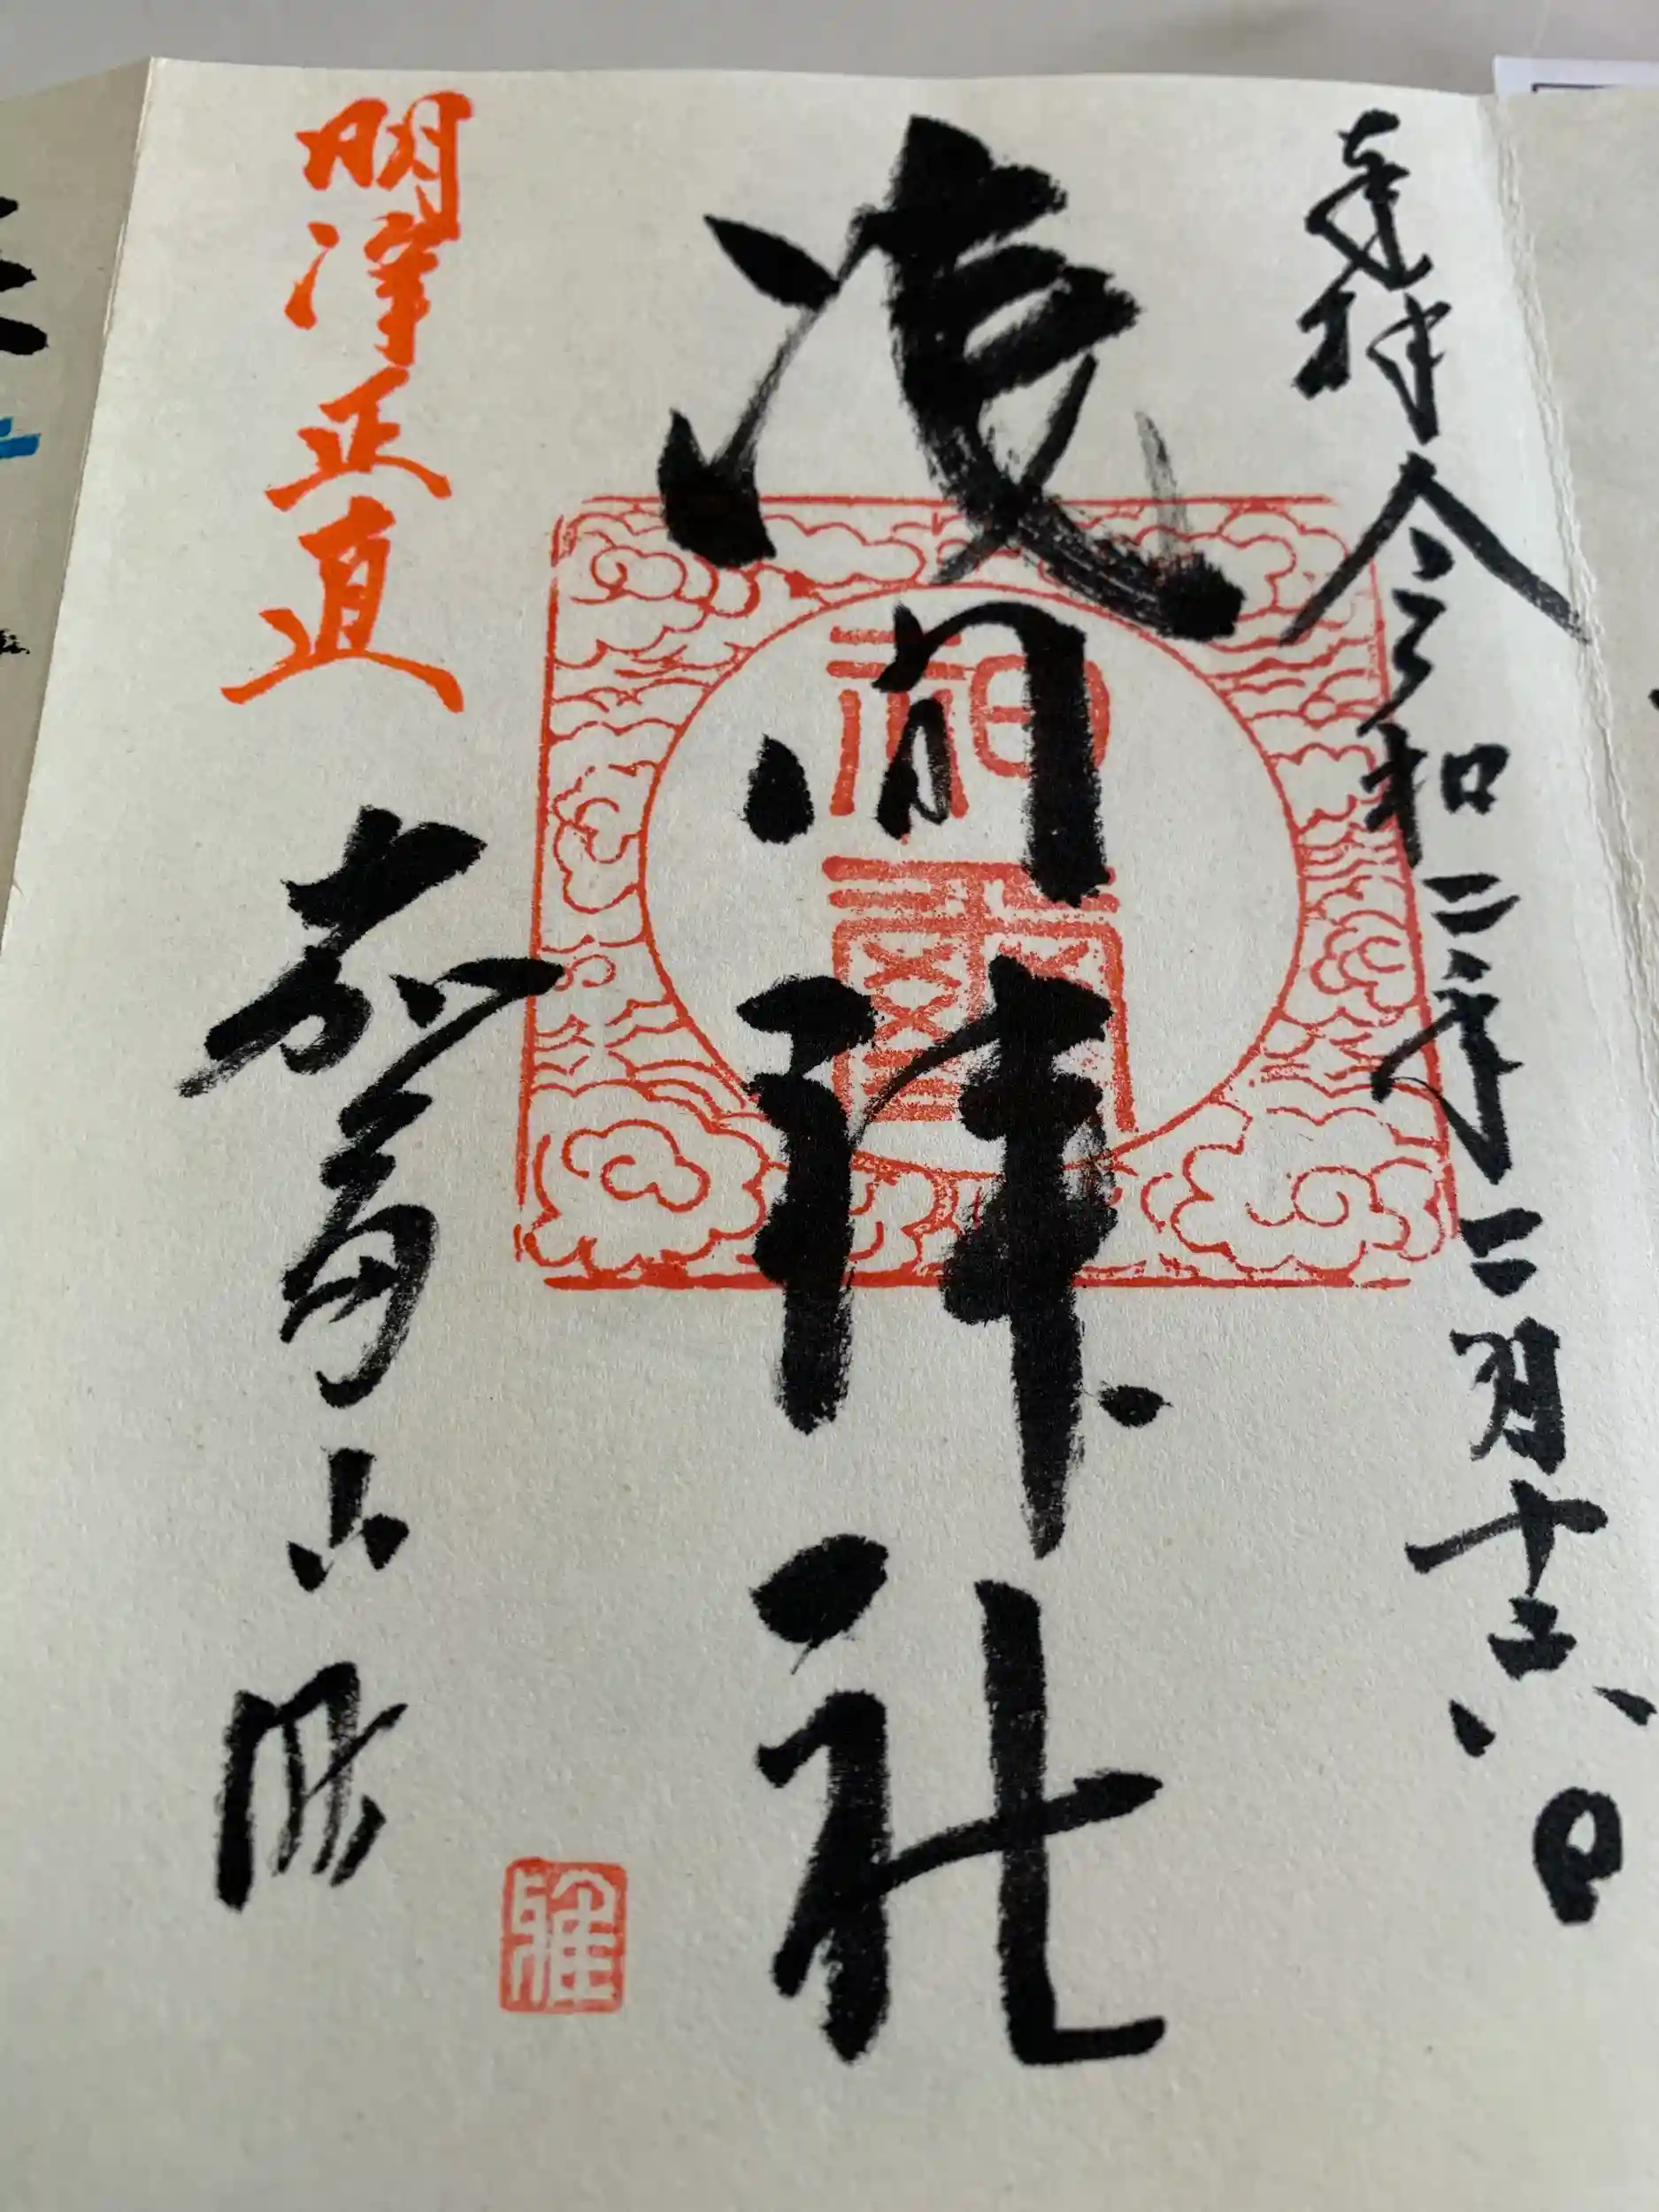 奉拝 令和二年二月十六日
浅間神社
神璽
明浄正直